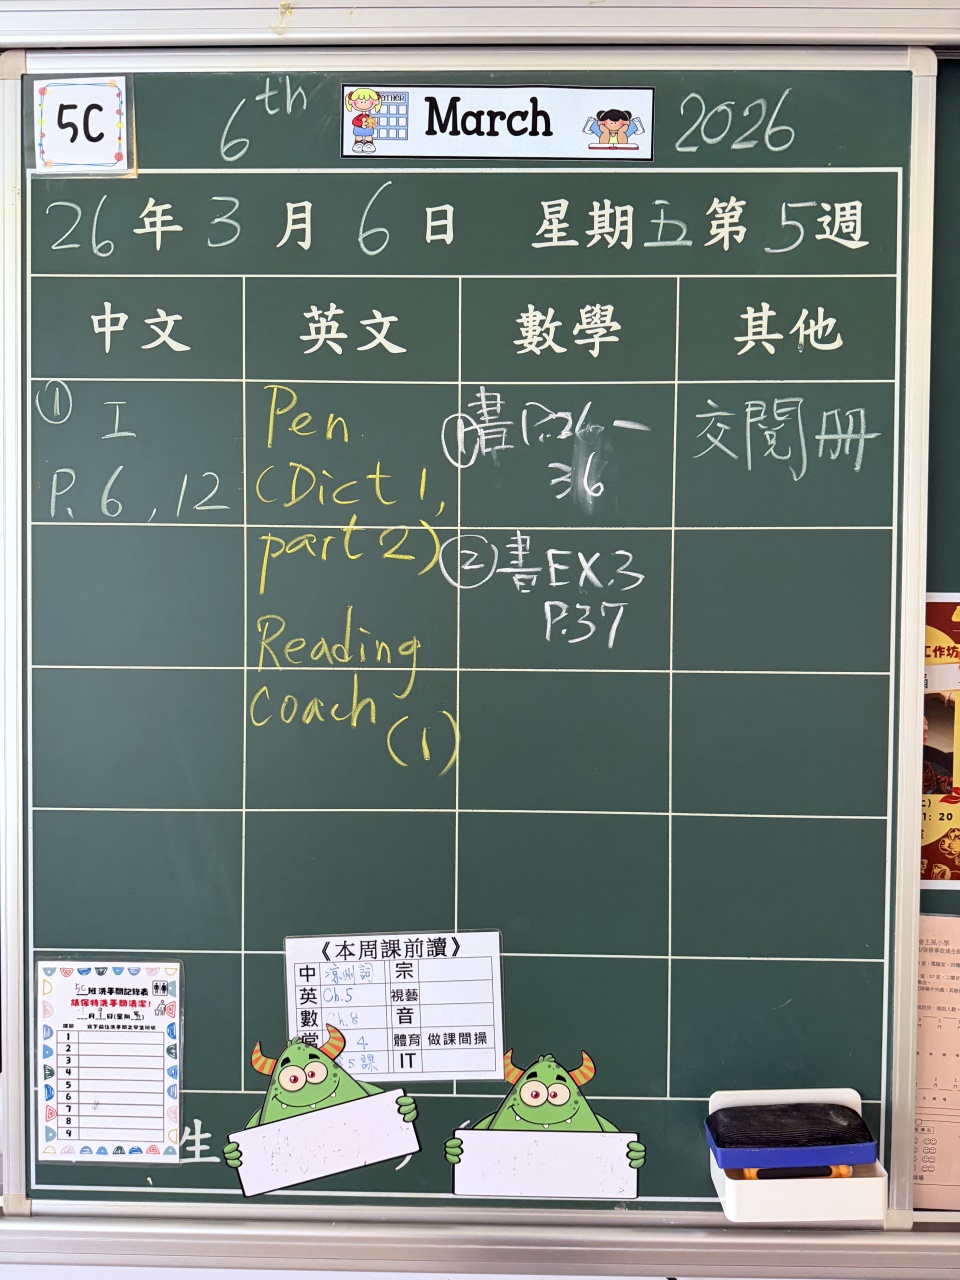 5C
6th March 2026
26年3月6日 星期五第5週
中文 英文 數學 其他
① 工
P.6,12
Pen
(Dict 1,
part 2)
Reading
Coach
(1)
① 書 P.26-
36
② 書 EX.3
P.37
交閱冊
《本周課前讀》
中 涼州詞 宗
英 Ch.5 視藝
數 Ch.8 音
常 4 體育 做課間操
5課 IT
5C班洗手間記錄表
請保持洗手間清潔!
月 日(星期
課節 寫下前往洗手間之學生班號
1
2
3
4
5
6
7
8
9
生
工作坊
1:20